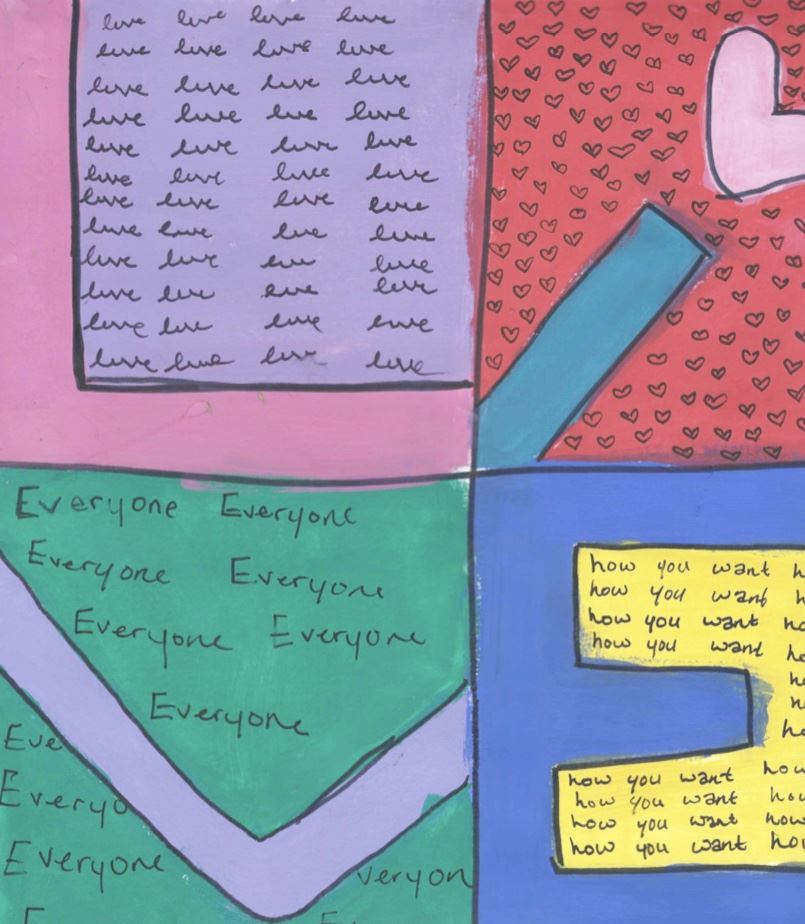 love love love love
love love love love
love love love love
love love love love
love love love love
love love love love
love love love love
love love love love
love love love love
love love love love
love love love love
love love love love
Everyone Everyone
Everyone Everyone
Everyone Everyone
Everyone
Eve
Everyo
Everyone
veryon
how you want h
how you want h
how you want ho
how you want ho
how you want how
how you want how
how you want how
how you want how